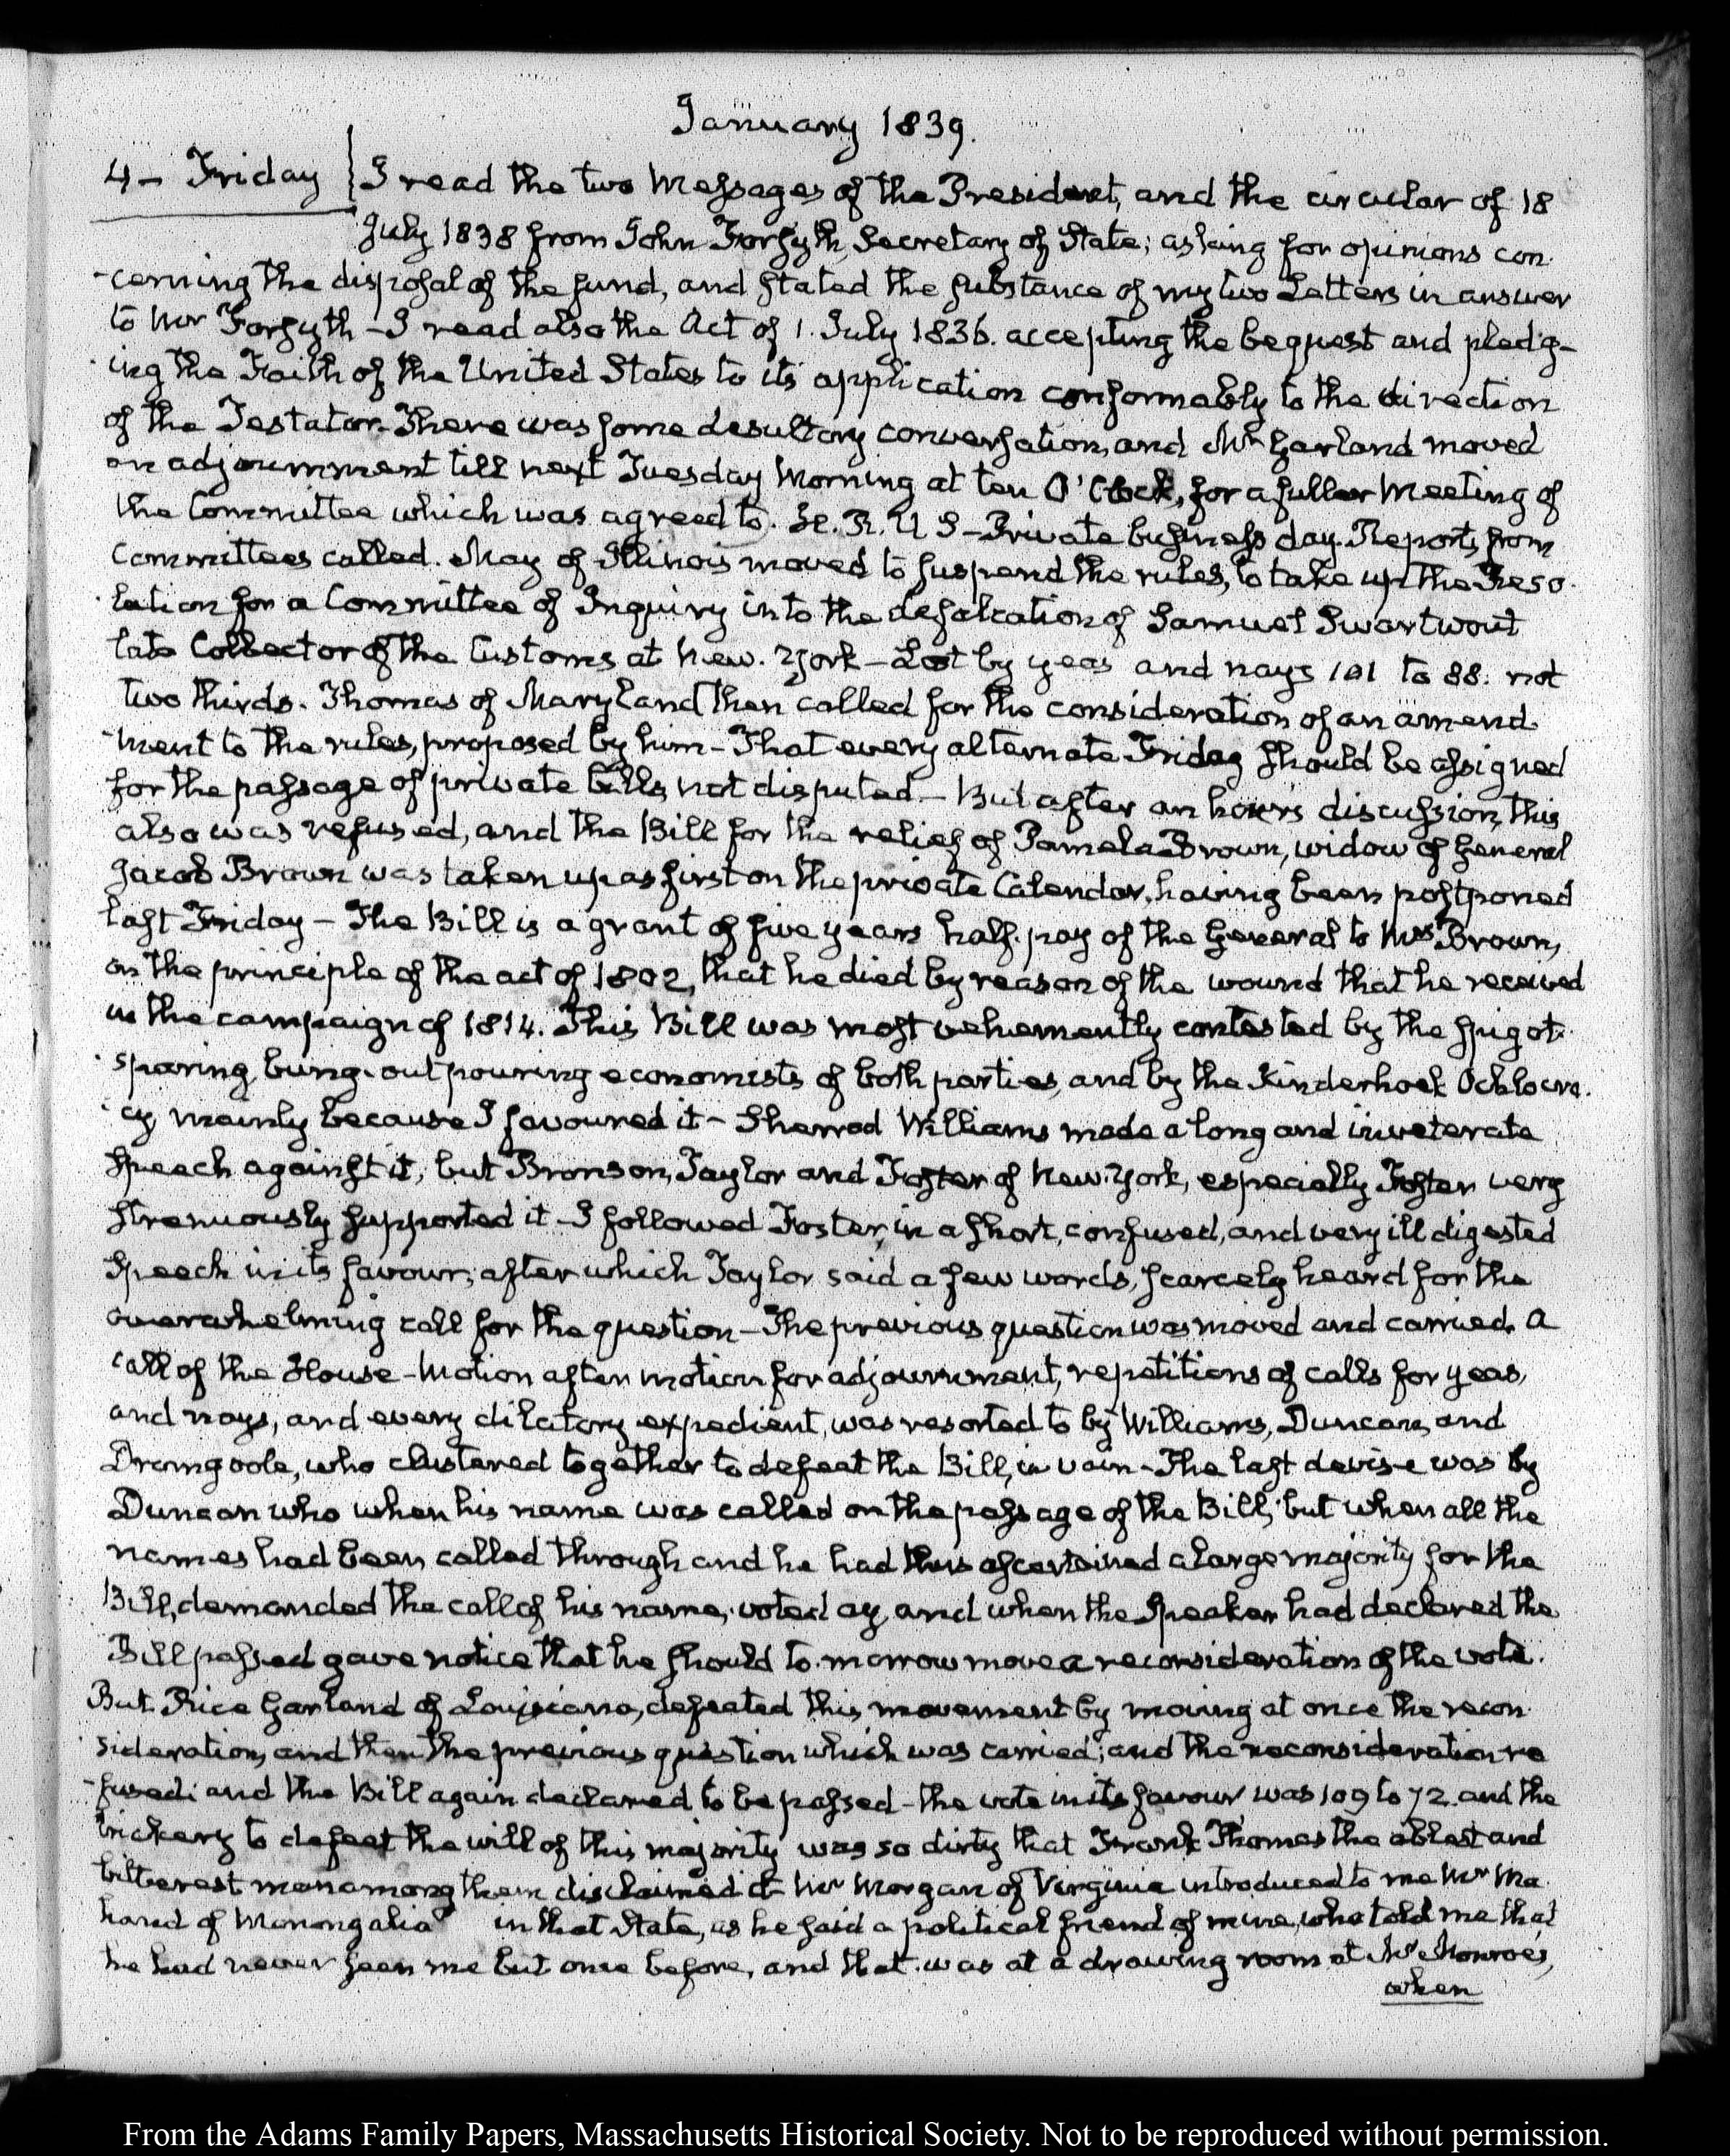 January 1839.
4 – Friday I read the two Messages of the President, and the circular of 18
July 1838 from John Forsyth, Secretary of State; asking for opinions con-
-cerning the disposal of the fund, and stated the substance of my two Letters in answer
to Mr Forsyth – I read also the Act of 1. July 1836. accepting the bequest and pledg-
-ing the Faith of the United States to its application conformably to the direction
of the Testator. There was some desultory conversation, and Mr Garland moved
an adjournment till next Tuesday Morning at ten O'Clock, for a fuller Meeting of
the Committee which was agreed to. H. R. U S – Private business day. Reports from
Committees called. May of Illinois moved to suspend the rules, to take up the Reso-
-lution for a Committee of Inquiry into the defalcation of Samuel Swartwout
late Collector of the Customs at New-York – Lost by yeas and nays 101 to 88. not
two thirds. Thomas of Maryland then called for the consideration of an amend-
-ment to the rules, proposed by him – That every alternate Friday should be assigned
for the passage of private bills not disputed – But after an hour's discussion, this
also was refused, and the Bill for the relief of Pamela Brown, widow of General
Jacob Brown was taken up as first on the private Calendar, having been postponed
last Friday – The Bill is a grant of five years half-pay of the General to Mrs Brown,
on the principle of the act of 1802, that he died by reason of the wound that he received
in the campaign of 1814. This Bill was most vehemently contested by the spigot-
-sparing, bung-out pouring economists of both parties, and by the Kinderhook Ochlocra-
-cy mainly because I favoured it – Sherrod Williams made a long and inveterate
speech against it, but Bronson, Taylor and Foster of New-York, especially Foster very
strenuously supported it – I followed Foster, in a short, confused, and very ill digested
Speech in its favour; after which Taylor said a few words, scarcely heard for the
overwhelming call for the question – The previous question was moved and carried. A
call of the House – Motion after motion for adjournment, repetitions of calls for yeas,
and nays, and every dilatory expedient, was resorted to by Williams, Duncan, and
Dromgoole, who clustered together to defeat the Bill, in vain – The last devise was by
Duncan who when his name was called on the passage of the Bill, but when all the
names had been called through and he had thus ascertained a large majority for the
Bill, demanded the call of his name, voted ay, and when the Speaker had declared the
Bill passed gave notice that he should to-morrow move a reconsideration of the vote.
But Rice Garland of Louisiana, defeated this movement by moving at once the recon-
-sideration, and then the previous question which was carried; and the reconsideration re
-fused; and the Bill again declared to be passed – the vote in its favour was 109 to 72. and the
trickery to defeat the will of this majority was so dirty that Frank Thomas the ablest and
bitterest man among them disclaimed it – Mr Morgan of Virginia introduced to me Mr Ma-
hand of Monongalia in that State, as he said a political friend of mine, who told me that
he had never seen me but once before, and that was at a drawing room at Mr Monroe's,
when
From the Adams Family Papers, Massachusetts Historical Society. Not to be reproduced without permission.